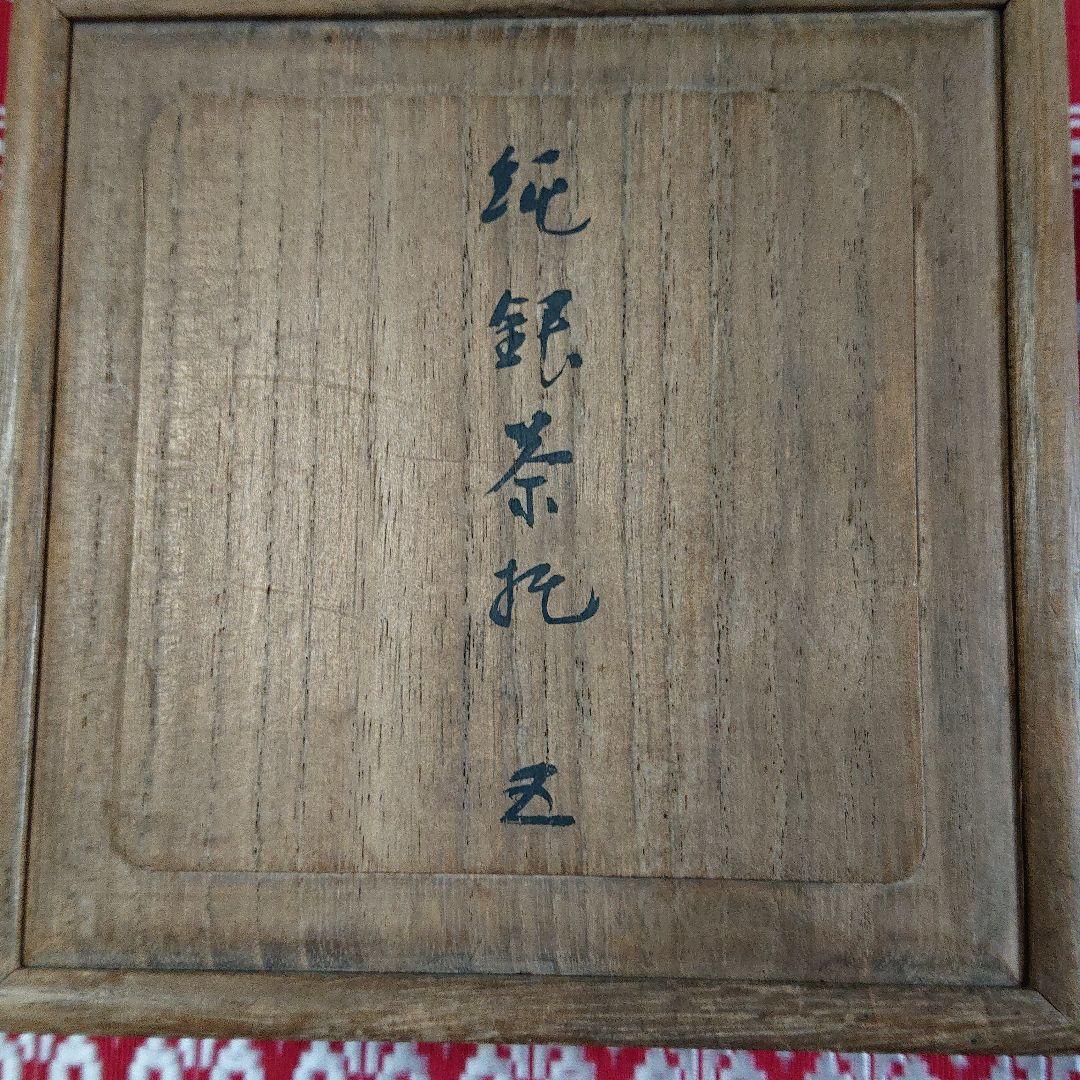 純銀茶托 五